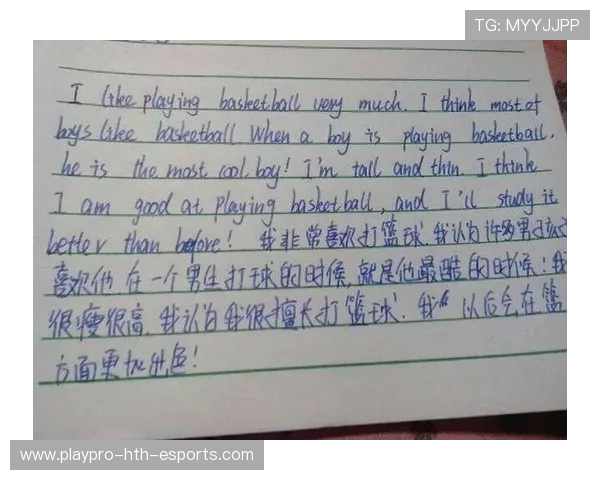 TG: MYYJJPP
I like playing basketball very much. I think most of
boys like basketball When a boy is playing basketball.
he is the most cool boy! I'm tall and thin. I think
I am good at playing basketball, and I'll study it
better than before! 我非常喜欢打篮球. 我认为许多男孩
喜欢他 在一个男生打球的时候, 就是他最酷的时候! 我
很瘦很高. 我认为我很擅长打篮球. 我 以后会在篮
方面更加出色!
www.playpro-hth-esports.com/